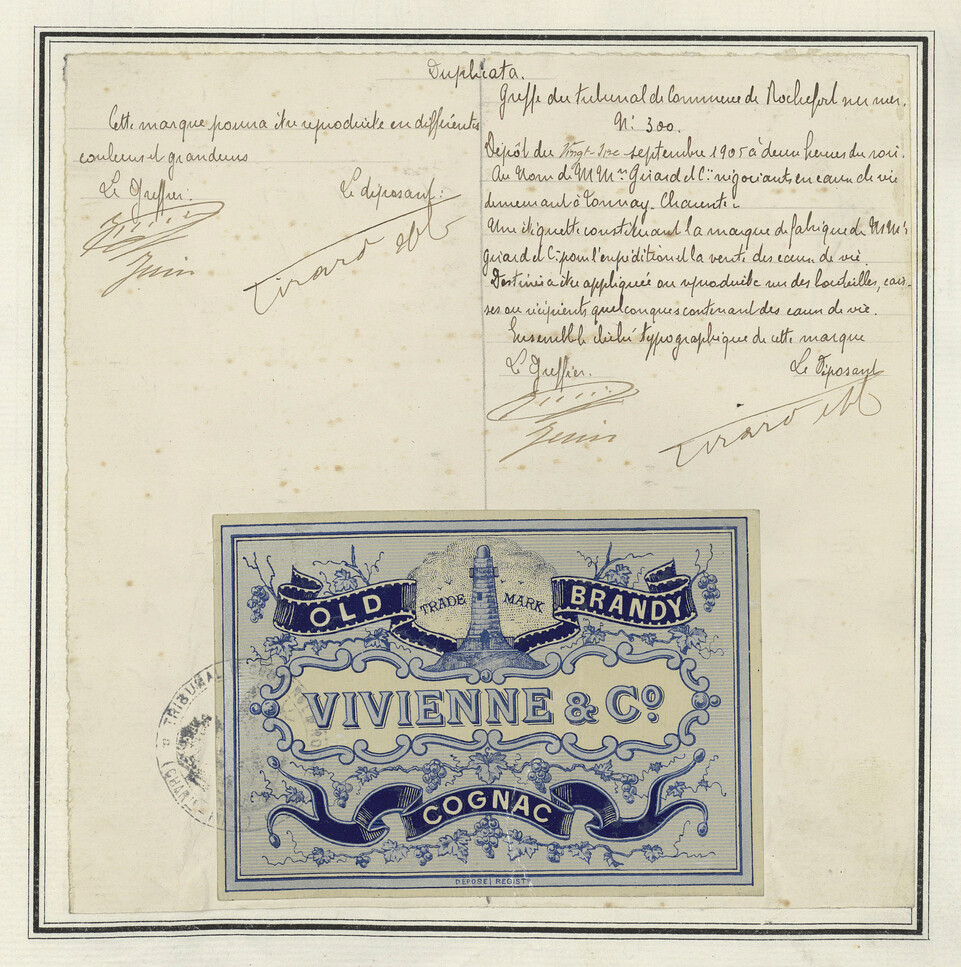 Duplicata.
Cette marque pourra être reproduite en différentes
couleurs et grandeurs
Le Greffier.
Le déposant:
Juin
Girard et Cie
Greffe du tribunal de Commerce de Rochefort sur mer.
N: 300.
Dépôt du septembre 1905 à deux heures du soir.
Au Nom de MMrs Girard et Cie négociants en eaux de vie
demeurant à Tonnay-Charente.
Une étiquette constituant la marque de fabrique de MMrs
Girard et Cie pour l'expédition et la vente des eaux de vie.
Destinée à être appliquée ou reproduite sur des bouteilles, cais-
ses ou récipients quelconques contenant des eaux de vie.
Ensemble le cliché typographique de cette marque
Le Greffier.
Le Déposant
Juin
Girard et Cie
OLD TRADE MARK BRANDY
VIVIENNE & Co
COGNAC
DEPOSE | REGIST
TRIBUNAL